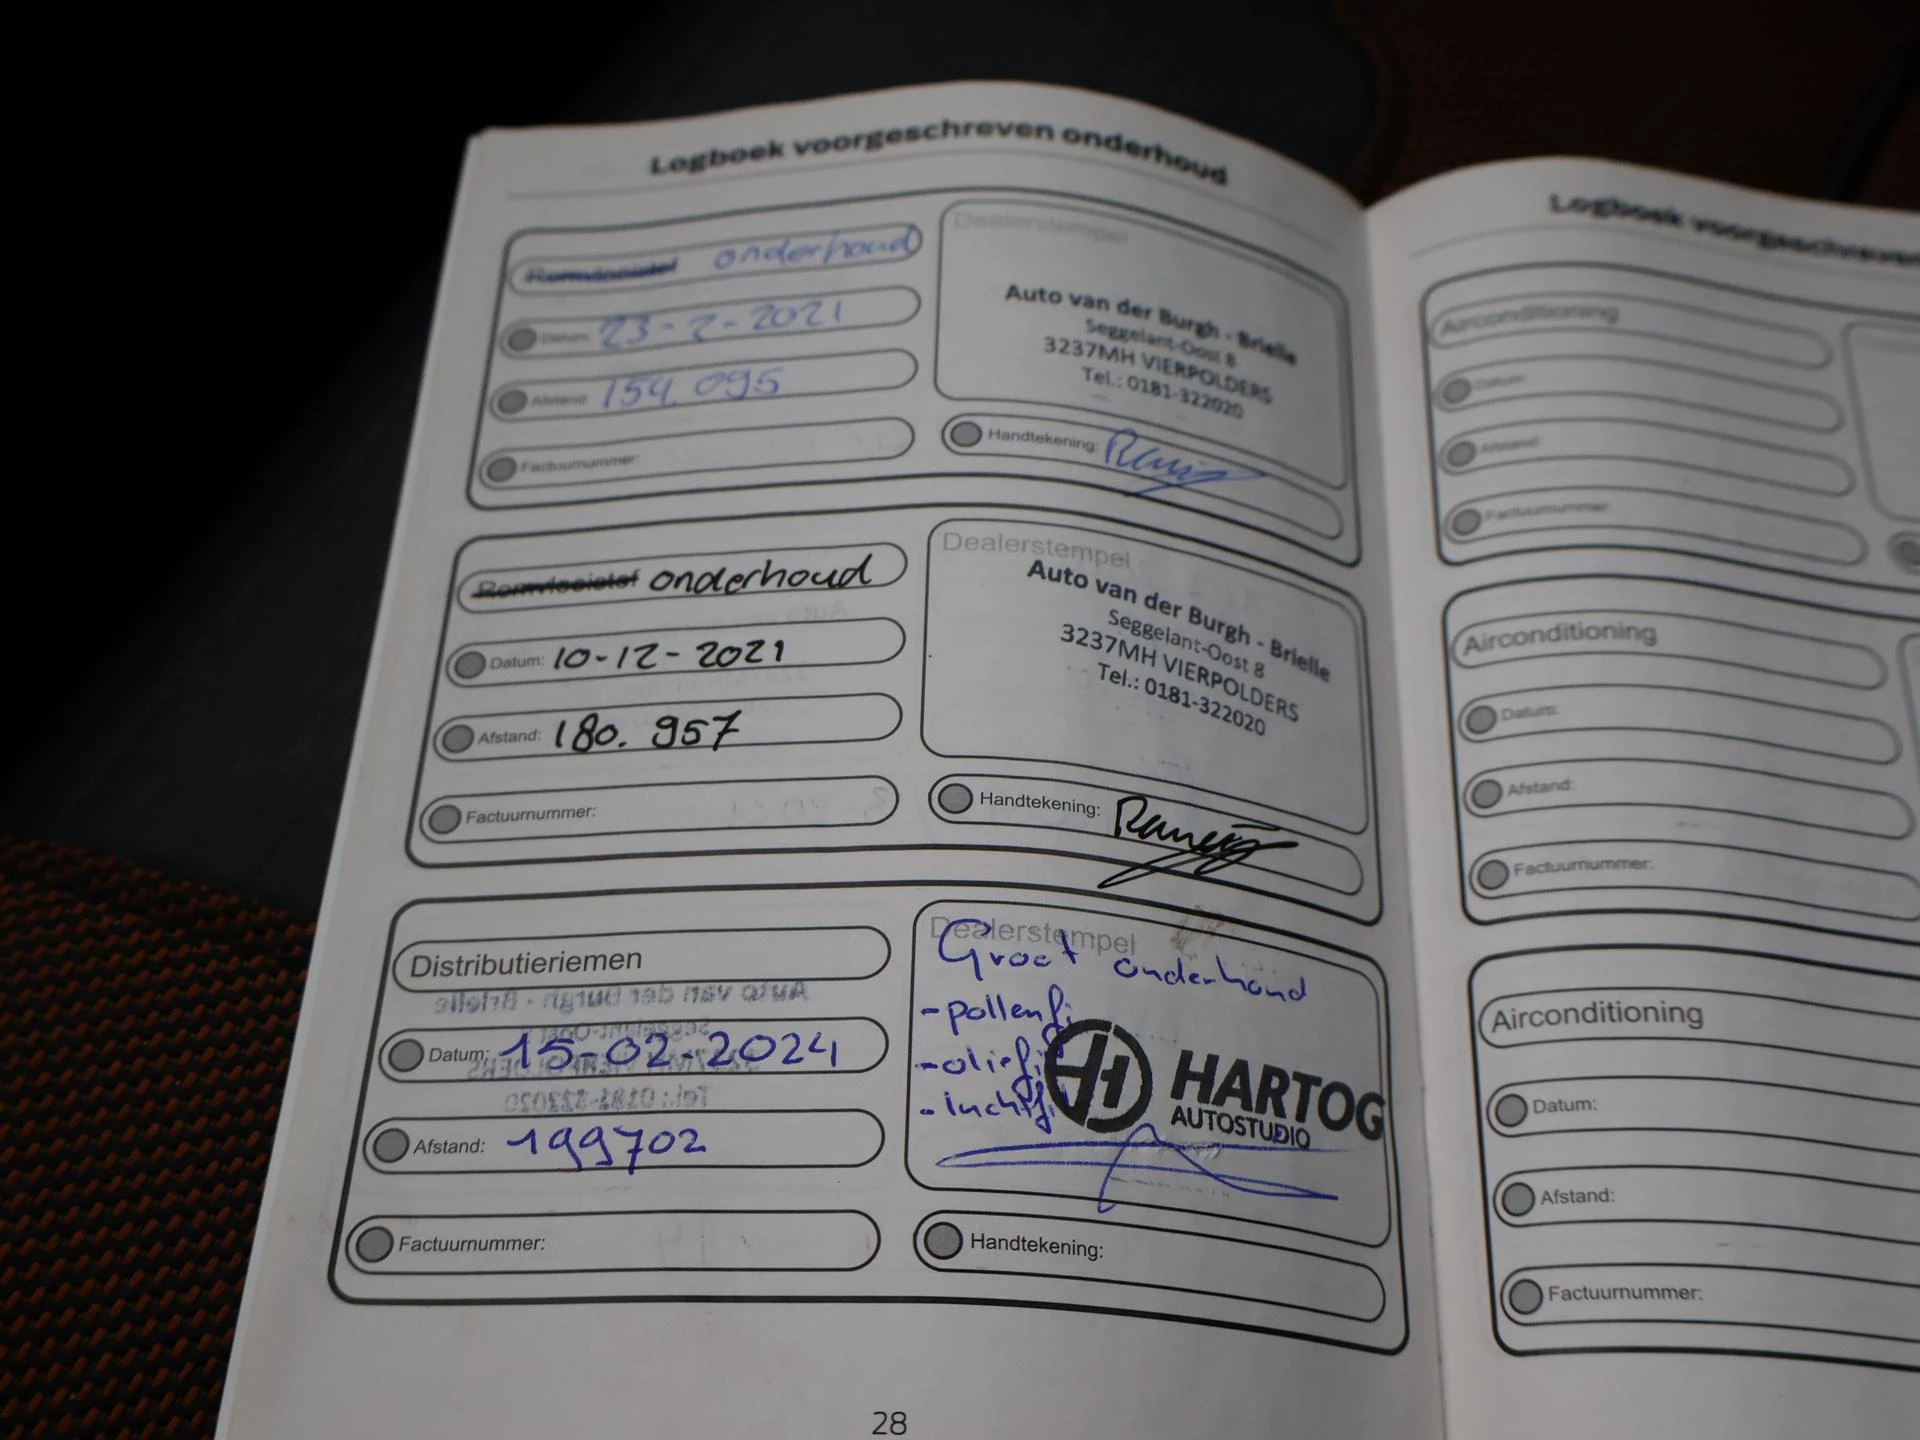 Logboek voorgeschreven onderhoud
Remvloeistof onderhoud
Datum: 23-2-2021
Afstand: 154.095
Factuurnummer:
Dealerstempel
Auto van der Burgh - Brielle
Seggelant-Oost 8
3237MH VIERPOLDERS
Tel.: 0181-322020
Handtekening:
Remvloeistof onderhoud
Datum: 10-12-2021
Afstand: 180.957
Factuurnummer:
Dealerstempel
Auto van der Burgh - Brielle
Seggelant-Oost 8
3237MH VIERPOLDERS
Tel.: 0181-322020
Handtekening:
Distributieriemen
Datum: 15-02-2024
Afstand: 199702
Factuurnummer:
Dealerstempel
Groot onderhoud
- pollenfi
- oliefi
- luchtfi
HARTOG
AUTOSTUDIO
Handtekening:
28
Logboek voorgeschreven
Airconditioning
Datum:
Afstand:
Factuurnummer:
Airconditioning
Datum:
Afstand:
Factuurnummer:
Airconditioning
Datum:
Afstand:
Factuurnummer: